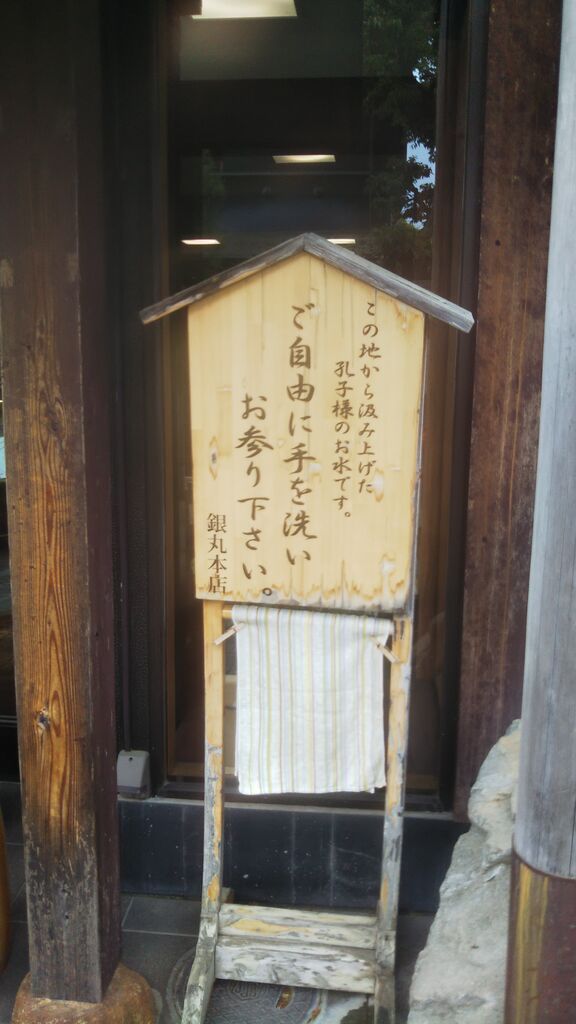 この地から汲み上げた
孔子様のお水です。
ご自由に手を洗い
お参り下さい。
銀丸本店